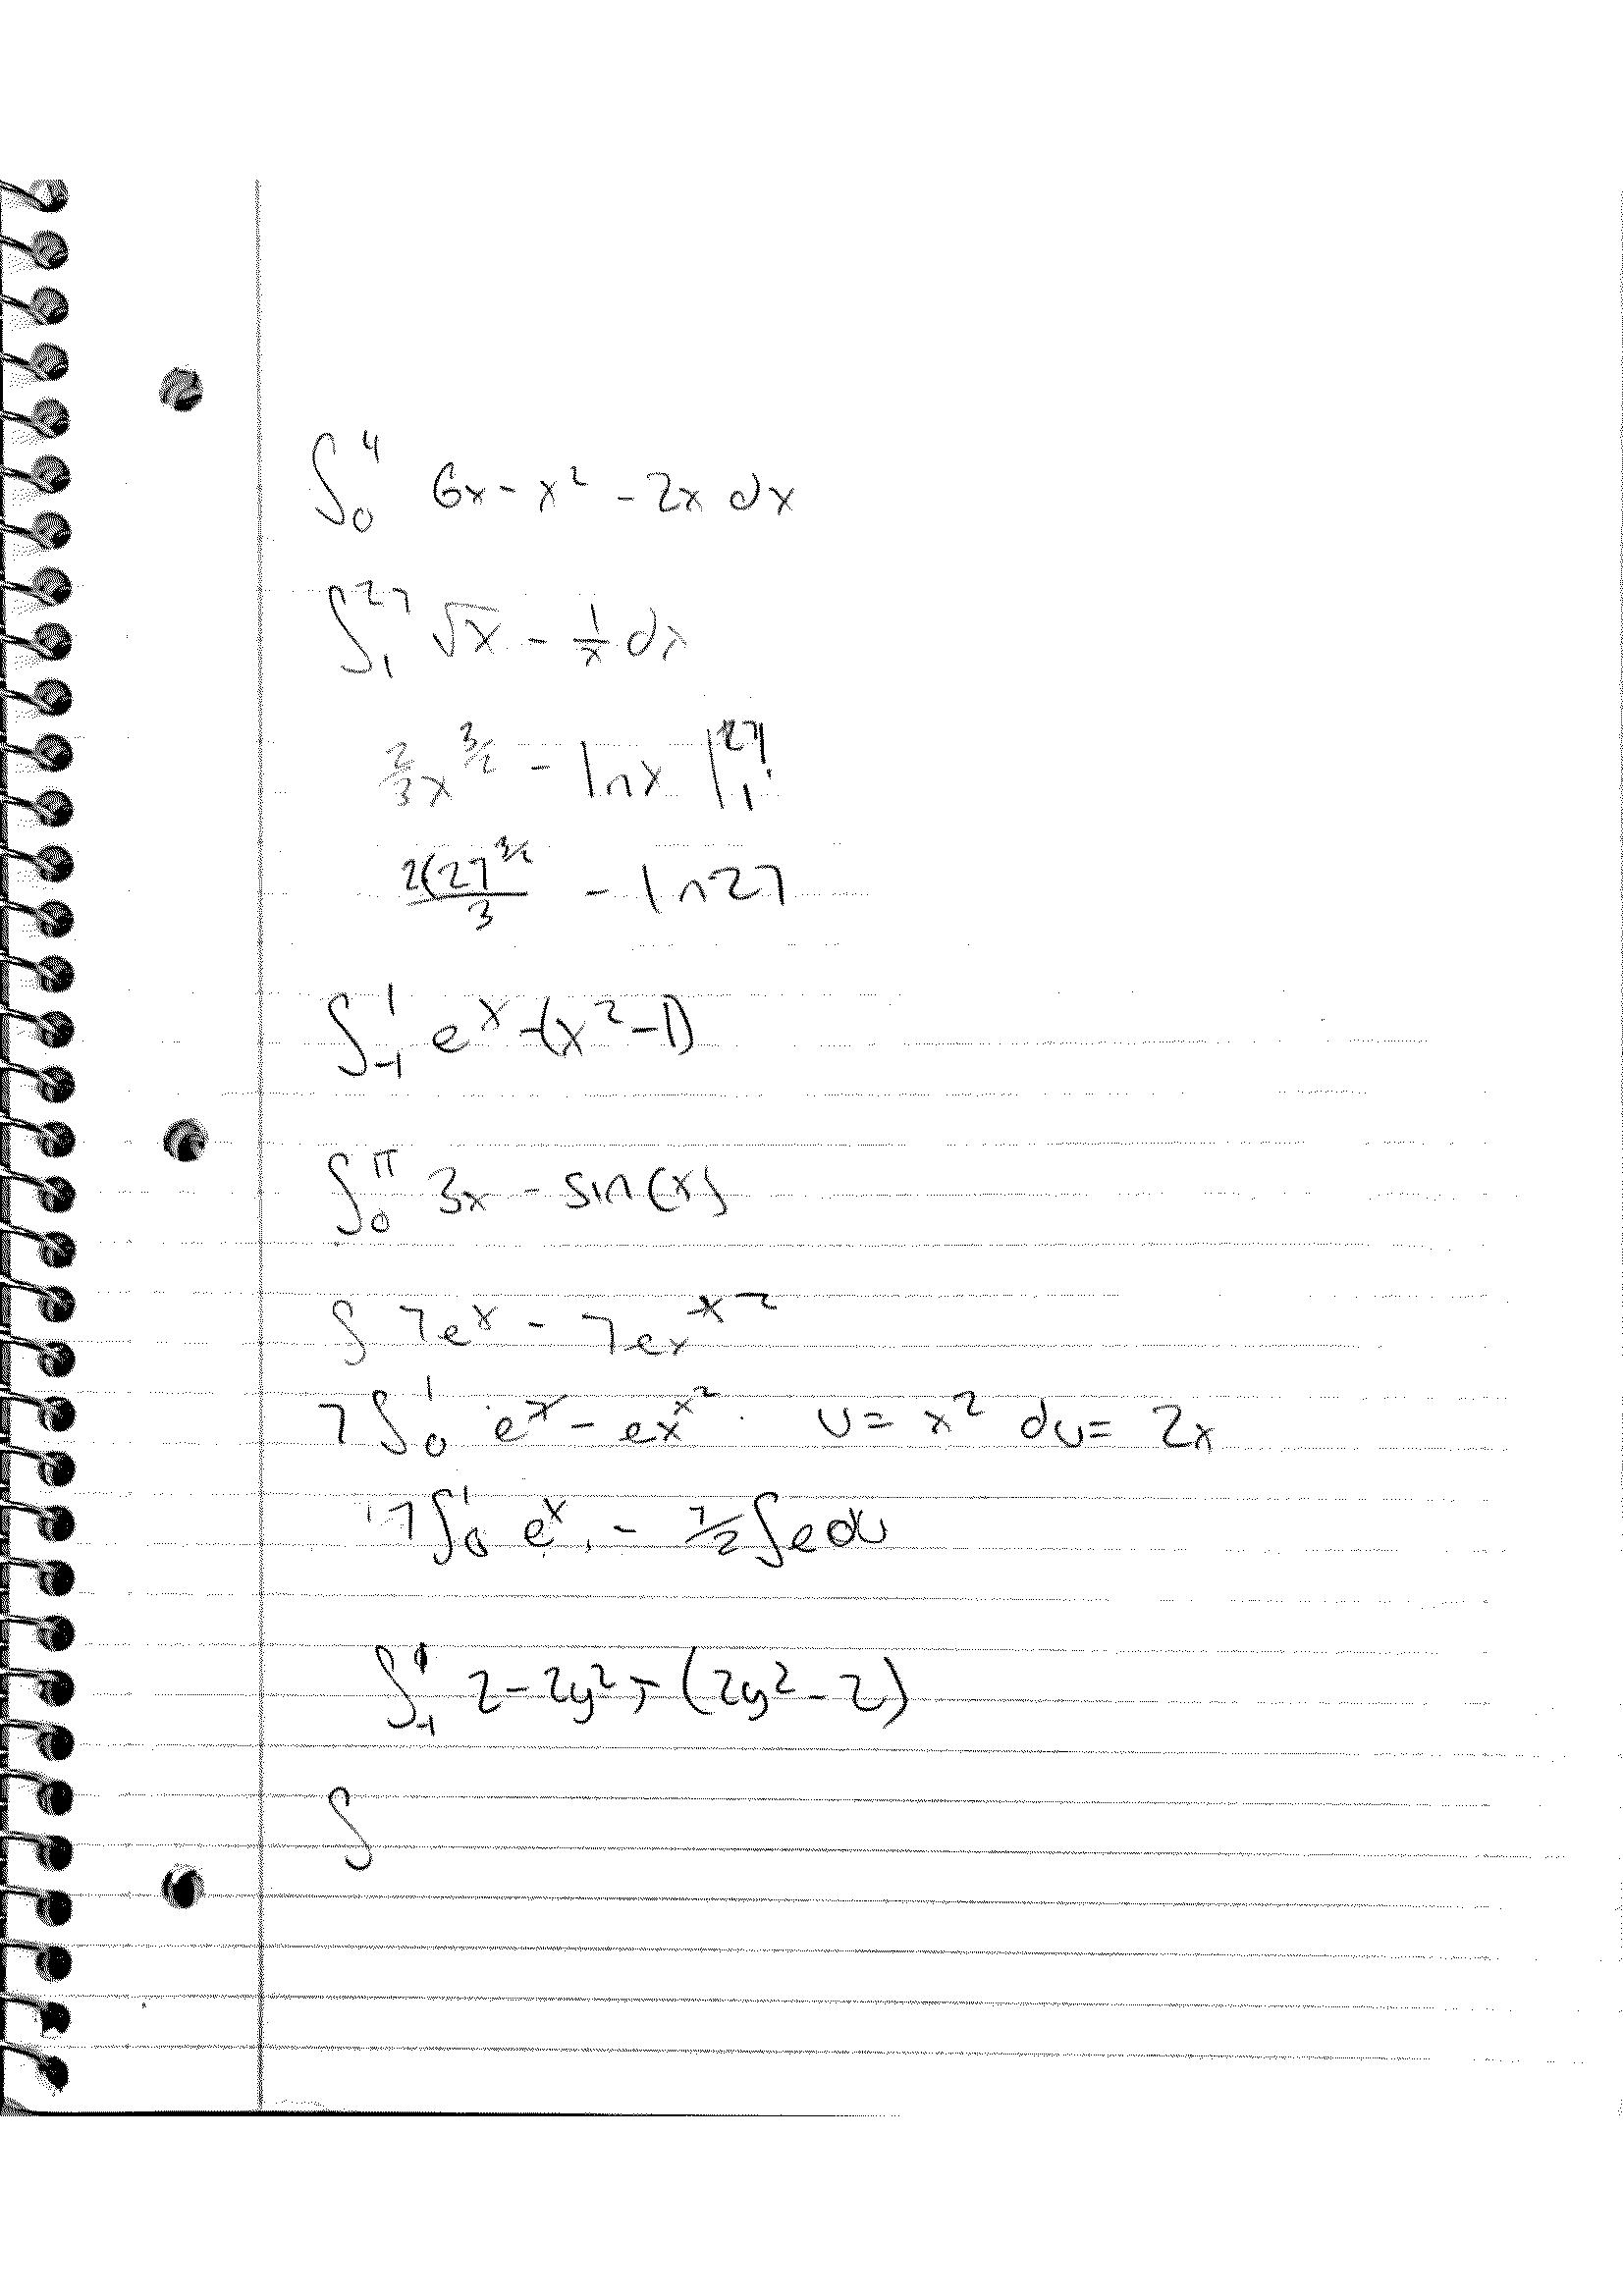 ∫₀⁴ 6x - x² - 2x dx
∫₁²⁷ √x - 1/x dx
2/3 x^(3/2) - ln x |₁²⁷
2(27^(3/2) / 3 - ln 27
∫₋₁¹ e^x - (x² - 1)
∫₀^π 3x - sin(x)
∫ 7e^x - 7ex^x²
7 ∫₀¹ e^x - ex^x² u = x² du = 2x
7 ∫₀¹ e^x - 7/2 ∫ e du
∫₋₁¹ 2 - 2y² - (2y² - 2)
∫